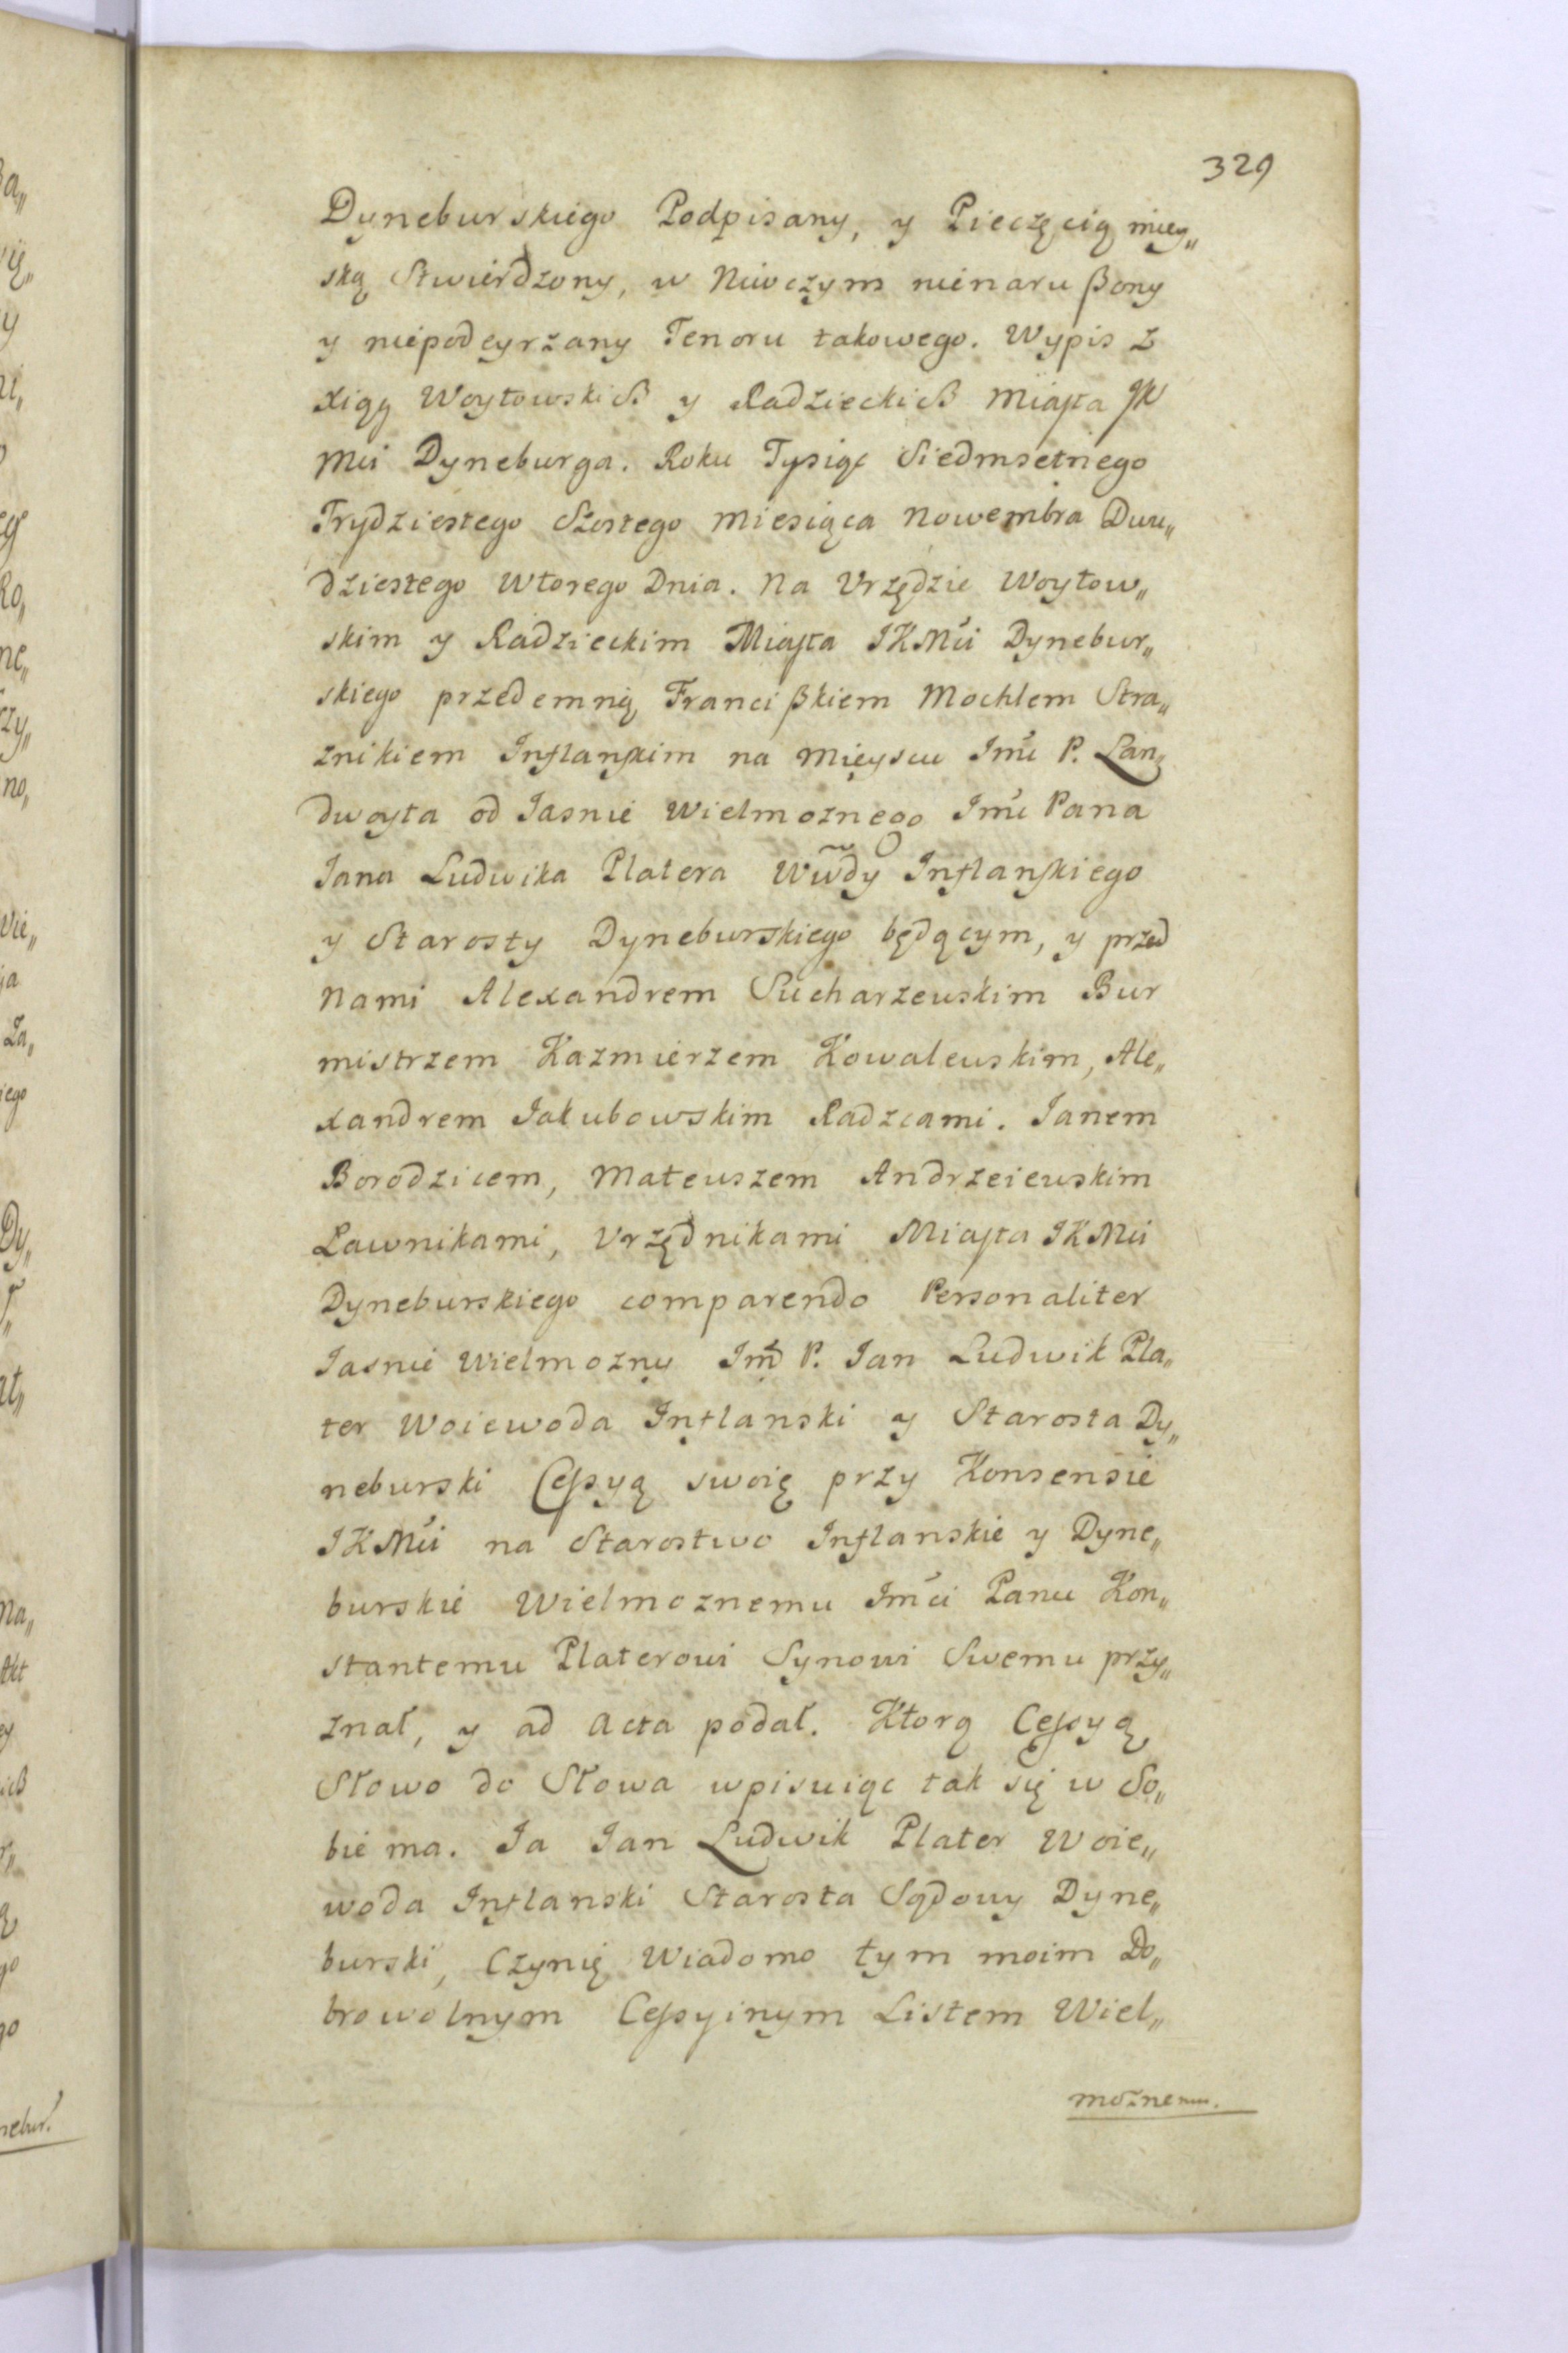 329
Dyneburskiego Podpisany, y Pieczęcią miey„
ską Stwierdzony, w Niwczym nienaruβony
y niepodeyrzany Tenoru takowego. Wypis z
xiąg Woytowskich y Radzieckich Miasta JK
Mci Dyneburga. Roku Tysiąc Siedmsetnego
Trydziestego Szostego Miesiąca Nowembra Dwu„
dziestego Wtorego Dnia. Na Vrzędzie Woytow„
skim y Radzieckim Miasta JKMći Dynebur„
skiego przedemną Franciβkiem Mochlem Stra„
znikiem Inflanskim na Mieyscu Jmći P. Lan„
dwoyta od Iasnie Wielmoznego Jmći Pana
Jana Ludwika Platera Wwdy Inflanskiego
y Starosty Dyneburskiego będącym, y przed
Nami Alexandrem Sucharzewskim Bur
mistrzem Kazmierzem Kowalewskim, Ale„
xandrem Jakubowskim Radzcami. Janem
Borodzicem, Mateuszem Andrzeiewskim
Ławnikami, Vrzędnikami Miasta JKMci
Dyneburskiego comparendo Personaliter
Iasnie Wielmozny Jmć P. Ian Ludwik Pla„
ter Woiewoda Inflanski y Starosta Dy„
neburski Cessyą swoię przy Konsensie
JKMći na Starostwo Inflanskie y Dyne„
burskie Wielmoznemu Jmći Panu Kon„
stantemu Platerowi Synowi Swemu przy„
znał, y ad Acta podał. Ktorą Cessyą
Słowo do Słowa wpisuiąc tak się w So„
bie ma. Ja Jan Ludwik Plater Woie„
woda Inflanski Starosta Sądowy Dyne„
burski, Czynię Wiadomo tym moim Do„
browolnym Cessyinym Listem Wiel„
moznemu.